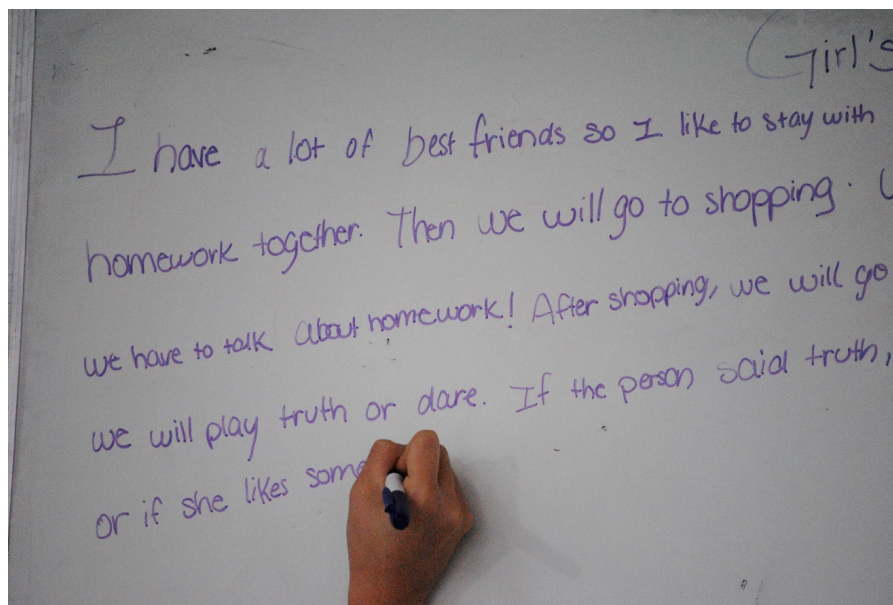 Girl's
I have a lot of best friends so I like to stay with
homework together. Then we will go to shopping.
we have to talk about homework! After shopping, we will go
we will play truth or dare. If the person said truth,
or if she likes some